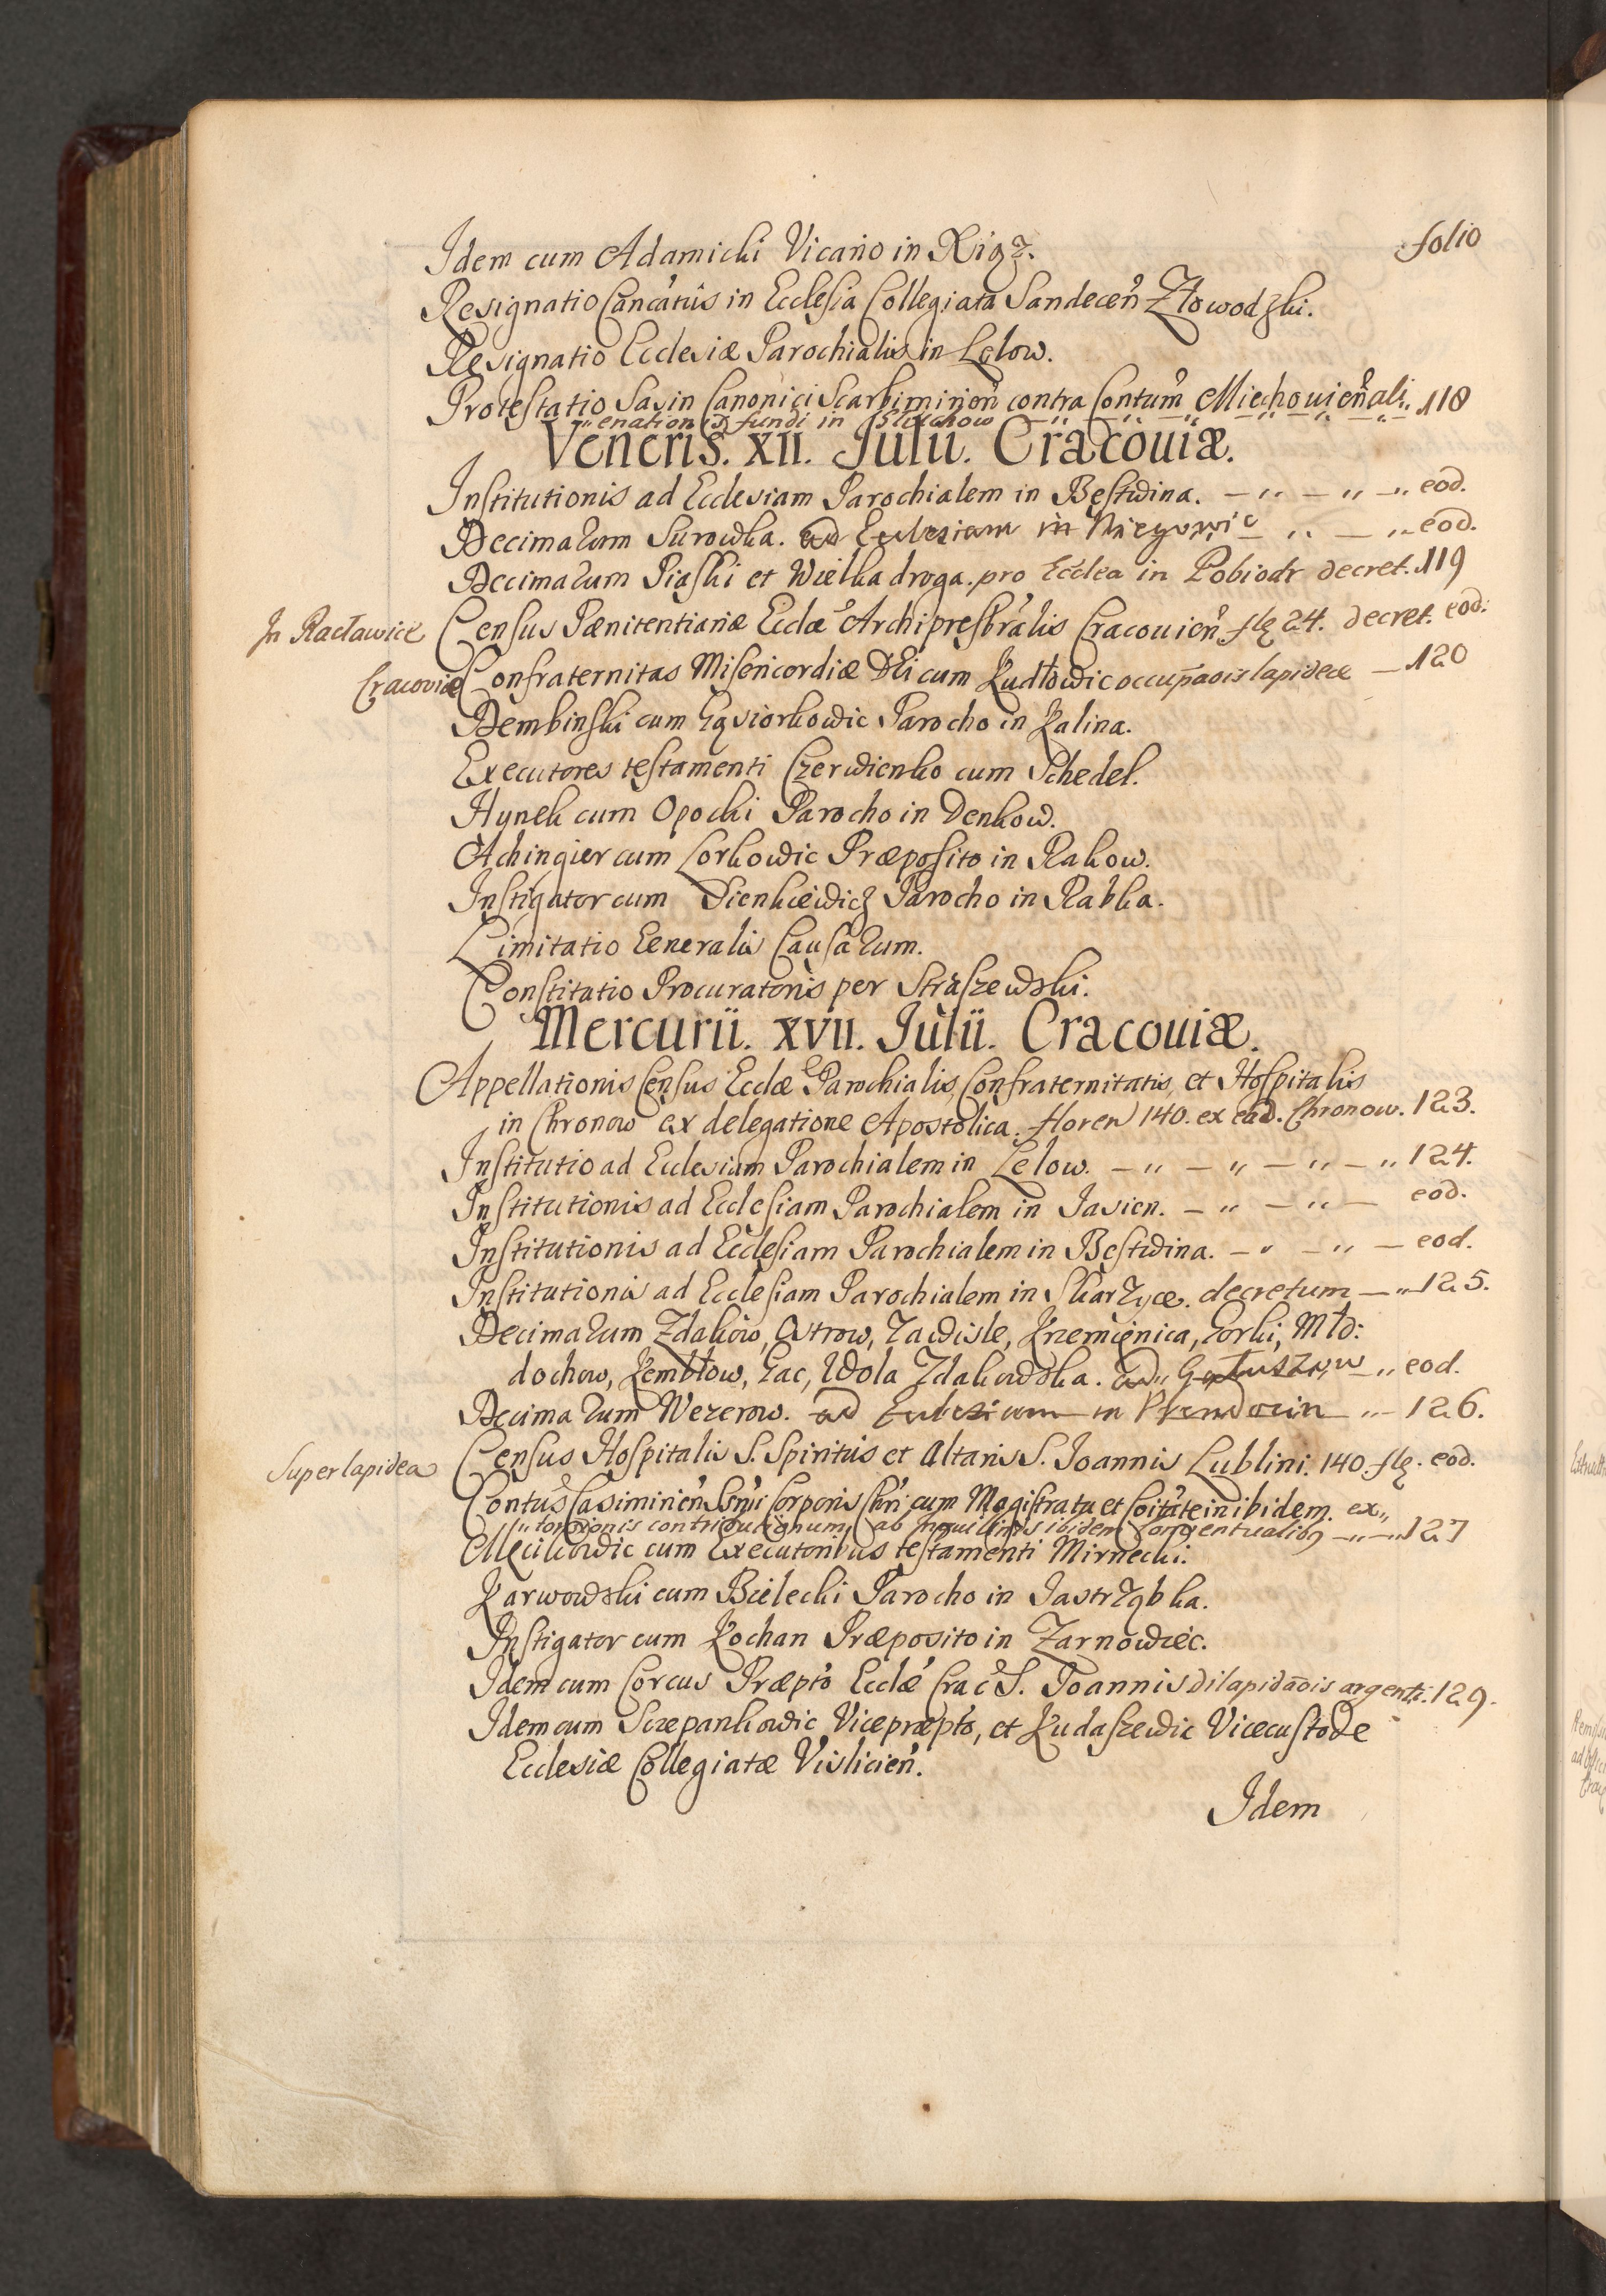 folio
Idem cum Adamicki Vicario in Xiąż.
Resignatio Canc̃atûs in Ecclesia Collegiata Sandeceñ Złowodzki.
Resignatio Ecclesiæ Parochialis in Lelow.
Protestatio Sasin Canonici Scarbimirieñ contra Contum̃ Miechouieñ ali„ 118
„enationis fundi in
Veneris. XII. Julii. Cracouiæ.
Institutionis ad Ecclesiam Parochialem in Bestwina. – „ – „ – „ eod.
Decimarum Surowka. ad Ecclesiam in Niegowic – „ – „ eod.
Decimarum Piaski et Wielka droga. pro Ecclea in Pobiedr decret. 119
In Racławice Census Pænitentiariæ Ecclæ Archipresbr̃alis Cracouieñ flę 24. decret. eod.
Cracoviæ Confraternitas Misericordiæ DEi cum Kudłowic occupãois lapideæ – 120
Dembinski cum Gąsiorkowic Parocho in Kalina.
Executores testamenti Czerwienko cum Schedel.
Hynek cum Opocki Parocho in Denkow.
Achingier cum Lorkowic Præposito in Rakow.
Instigator cum Sienkiewicz Parocho in Rabka.
Limitatio Generalis Causarum.
Constitatio Procuratoris per Straszewski.
Mercurii. XVII. Julii. Cracouiæ.
Appellationis Census Ecclæ Parochialis, Confraternitatis, et Hospitalis
in Chronow ex delegatione Apostolica. floren 140. ex ead. Chronow. 123.
Institutio ad Ecclesiam Parochialem in Lelow. – „ – „ – „ – „ 124.
Institutionis ad Ecclesiam Parochialem in Jasien. – „ – „ – eod.
Institutionis ad Ecclesiam Parochialem in Bestwina. – „ – „ – eod.
Institutionis ad Ecclesiam Parochialem in Skarzyce. decretum – „ 125.
Decimarum Zdakow, Ostrow, Zawisle, Krzemienica, Gorki, Mło:
dochow, Kembłow, Gac, Wola Zdakowska. ad „ – „ eod.
Decimarum Wezerow. ad Ecclesiam in Prendocin – „ – 126.
Super lapidea Census Hospitalis S. Spiritûs et Altaris S. Joannis Lublini. 140. flę. eod.
Contus̃ Casimirieñ Ssm̃i Corporis Chr̃i cum Magistratu et Coitãte inibidem ex„
„torsionis contributionum, ab inquilinis ibidem conventualibꝫ – „ – „ 127
Mecikowic cum Executoribus testamenti Mirnecki.
Karwowski cum Bielecki Parocho in Jastrząbka.
Instigator cum Kochan Præposito in Zarnowiec.
Idem cum Corcus Præpto Ecclæ Crac̃ S. Joannis dilapidãois argenti. 129.
Idem cum Szczepankowic Vicepræpto, et Kudaszewic Vicecustode
Ecclesiæ Collegiatæ Vislicieñ.
Idem